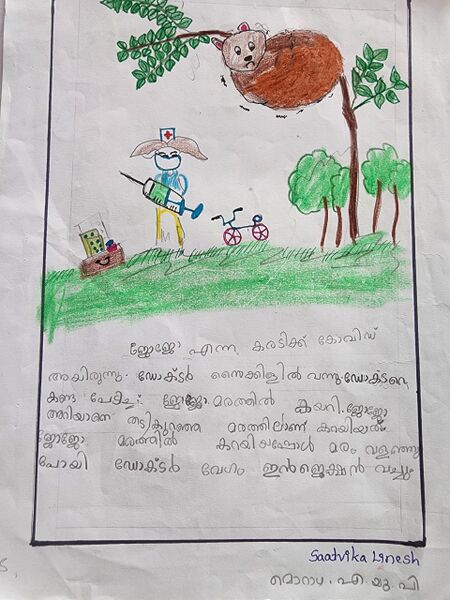 ജോജോ എന്ന കരടിക്ക് കോവിഡ്
ആയിരുന്നു. ഡോക്ടർ സൈക്കിളിൽ വന്നു. ഡോക്ടറെ
കണ്ട പേടിച്ച് ജോജോ മരത്തിൽ കയറി. ജോജോ
തടികുറഞ്ഞ മരത്തിലാണ് കയറിയത്
ജോജോ മരത്തിൽ കയറിയപ്പോൾ മരം വളഞ്ഞു
പോയി ഡോക്ടർ വേഗം ഇൻജെക്ഷൻ വച്ചു
Saatvika Linesh
മൊറാഴ. എ. യു. പി